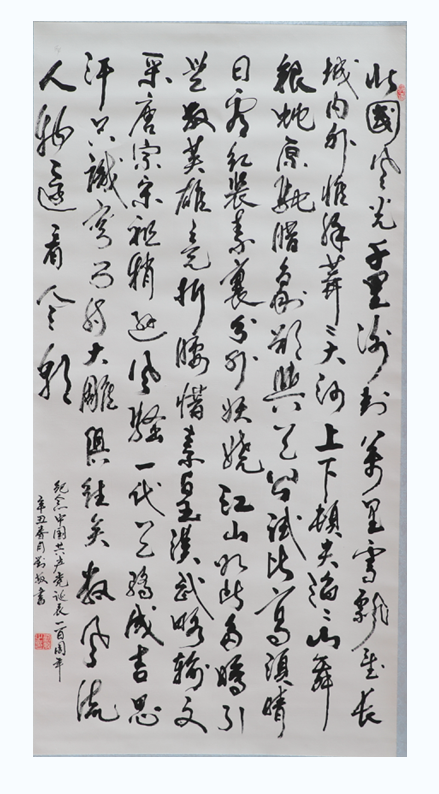 北國风光千里冰封万里雪飘望长
城内外惟馀莽〻大河上下顿失滔〻山舞
银蛇原驰腊象欲與天公试比高须晴
日看红装素裹分外妖娆江山如此多娇引
无数英雄竞折腰惜秦皇汉武略输文
采唐宗宋祖稍逊风骚一代天骄成吉思
汗只识弯弓射大雕俱往矣数风流
人物还看今朝
纪念中国共产党诞辰一百周年
辛丑春月刘敏书